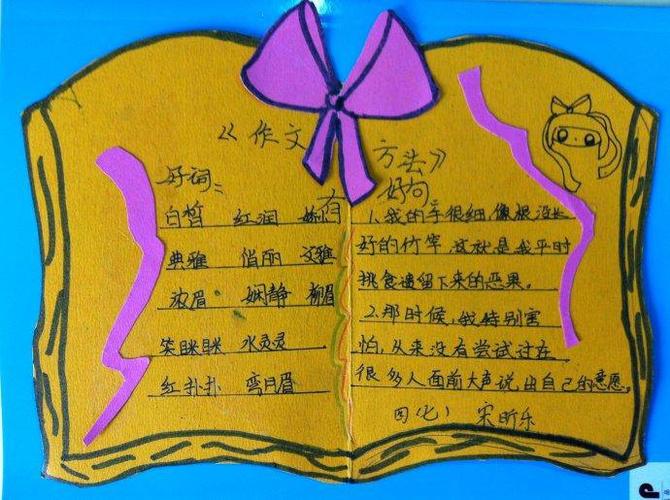 《作文
方法》
好词:
有
白皙 红润
典雅 俏丽 文雅
浓眉 娴静 柳眉
笑眯眯 水灵灵
红扑扑 弯月眉
好句
1.我的手很细,像根没长
好的竹竿,这就是我平时
挑食遗留下来的恶果。
2.那时候,我特别害
怕,从来没有尝试过在
很多人面前大声说出自己的意愿。
四(七) 宋昕乐